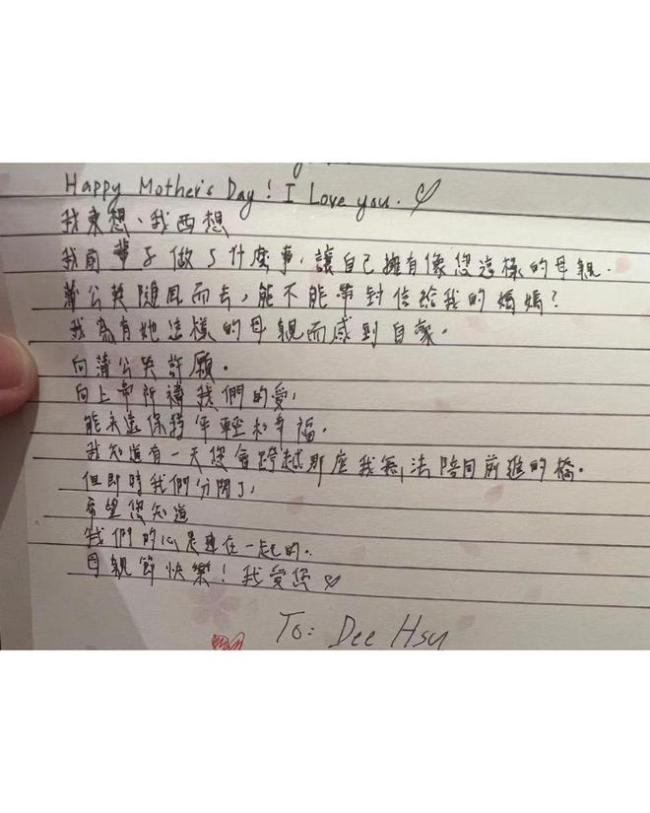 Happy Mother's Day! I Love you.
我東想、我西想
我前輩子做了什麼事，讓自己擁有像您這樣的母親.
蒲公英隨風而去，能不能帶封信給我的媽媽？
我為有她這樣的母親而感到自豪。
向蒲公英許願。
向上帝祈禱我們的愛，
能永遠保持年輕和幸福。
我知道有一天您會跨越那座我無法陪同前進的橋。
但即時我們分開了，
希望您知道
我們的心是連在一起的.
母親節快樂！我愛您
To: Dee Hsu